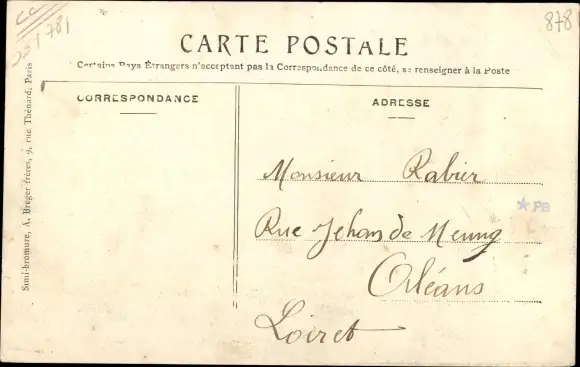 878
CARTE POSTALE
Certains Pays Étrangers n'acceptent pas la Correspondance de ce côté, se renseigner à la Poste
CORRESPONDANCE
ADRESSE
Monsieur Rabier
Rue Jehan de Meung
Orléans
Loiret
PB
Semi-bromure, A. Breger frères, 9, rue Thénard, Paris